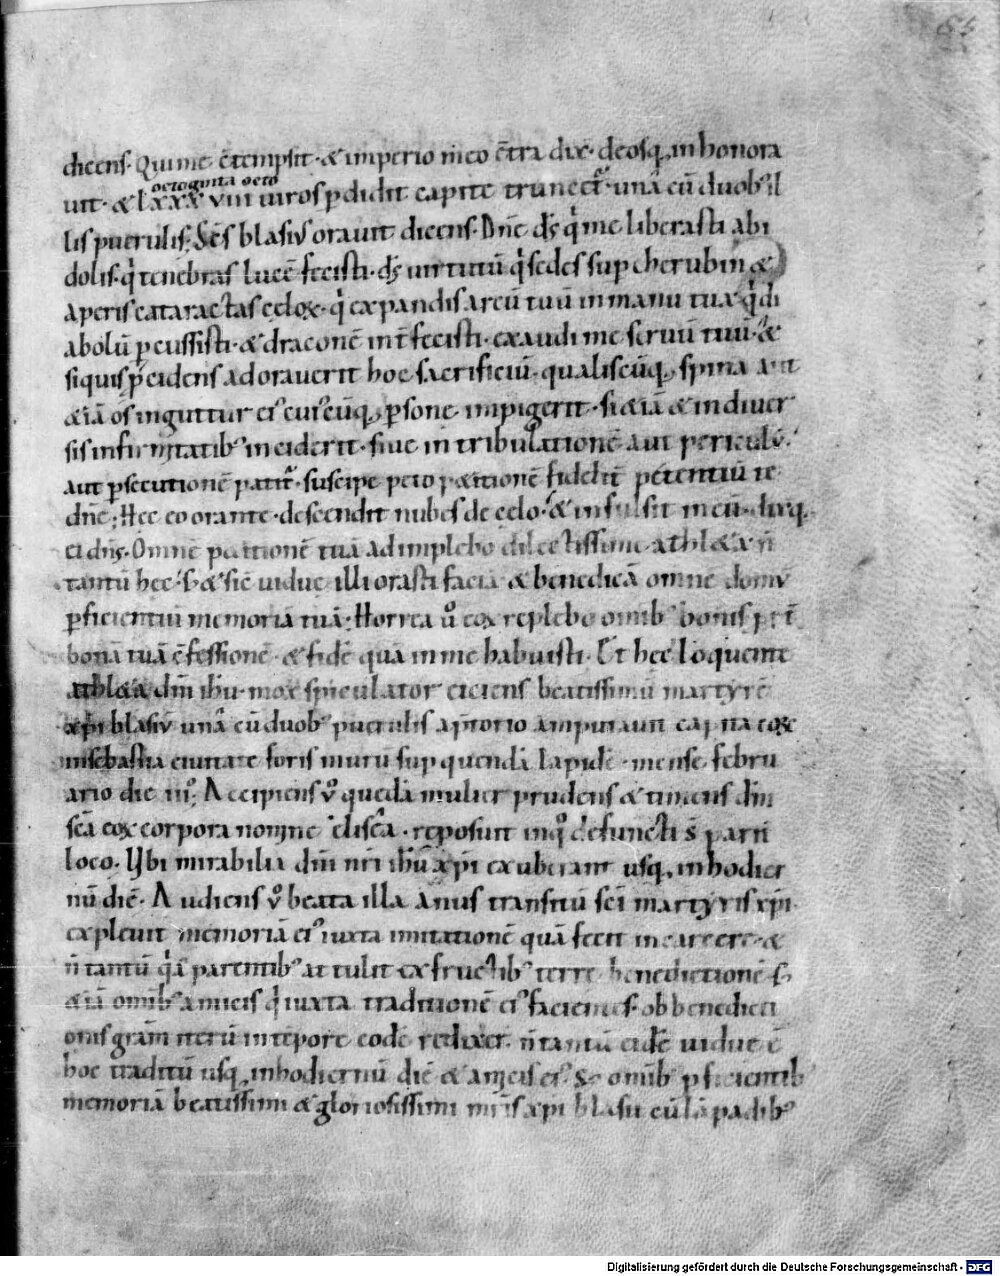 65
dicens. Qui me c̄tempsit · & imperio meo c̄tra dix̄ · deosq; inhonora
octoginta octo
uit · & lxxx viii uiros p̄didit capite truncet᷑ · unā cū duob᷒ il
lis puerulis; Sc̄s blasius orauit dicens. Dn̄e ds̄ qͥ me liberasti ab i
dolis · qͥ tenebras lucē fecisti · ds̄ uirtutū qͥ sedes sup cherubin &
aperis cataractas cęloꝝ · qͥ expandis arcū tuū in manu tua · qͥ di
abolū p̄cussisti · & draconē int̄fecisti · exaudi me seruū tuū · &
siquis p̄cidens adorauerit hoc sacrificiū · qualiscūq; spina aut
&iā os inguttur ei᷒ cui᷒cūq; p̄sone impigerit · si &iā & in diuer
sis infirmitatib᷒ inciderit · siue in tribulationē aut periculū
aut p̄secutionē patit᷑ · suscipe peto p&itionē fidelit̄ petentiū te
dn̄e; Hec eo orante · descendit nubes de celo · & infulsit in eū · dixq;
ei dn̄s. Omnē p&itionē tuā adimplebo dilectissime athl&a · n̄
tantū hec · s; & sic̄ uidue illi orasti faciā & benedicā omnē domū
p̄ficientiū memoriā tuā; Horrea u᷒ eoꝝ replebo omīb᷒ bonis ppt̄
bonā tuā c̄fessionē · & fidē quā in me habuisti. Et hec loquente
athl&a dn̄i ihū · mox spiculator eiciens beatissimū martyrē
xp̄i blasiū unā cū duob᷒ puerulis a p̄torio amputauit capita eoꝝ
in sebastia ciuitate foris murū sup quendā lapidē · mense febru
ario die iii; Accipiens u᷒ quedā mulier prudens & timens dm̄
sc̄a eoꝝ corpora nomine elisēa · reposuit inq᷒ defuncti s̄ parti
loco. Ubi mirabilia dn̄i nr̄i ihū xp̄i exuberant usq; in hodier
nū diē. Audiens u᷒ beata illa anus transitū sc̄i martyris xp̄i ·
expleuit memoriā ei᷒ iuxta imitationē quā fecit in carcere · &
n̄ tantū parentib᷒ attulit ex fructib᷒ terre benedictionē · s;
&iā omīb᷒ amicis qͥ iuxta traditionē ei᷒ facientes ob benedicti
onis grām iterū in tēpore eodē · n̄ tantū eidē uidue ē
hoc traditū usq; in hodiernū diē & amicis ei᷒ · S; omīb᷒ p̄ficientib᷒
memoriā beatissimi & gloriosissimi mr̄is xp̄i blasii cū lāpadib᷒
Digitalisierung gefördert durch die Deutsche Forschungsgemeinschaft - DFG